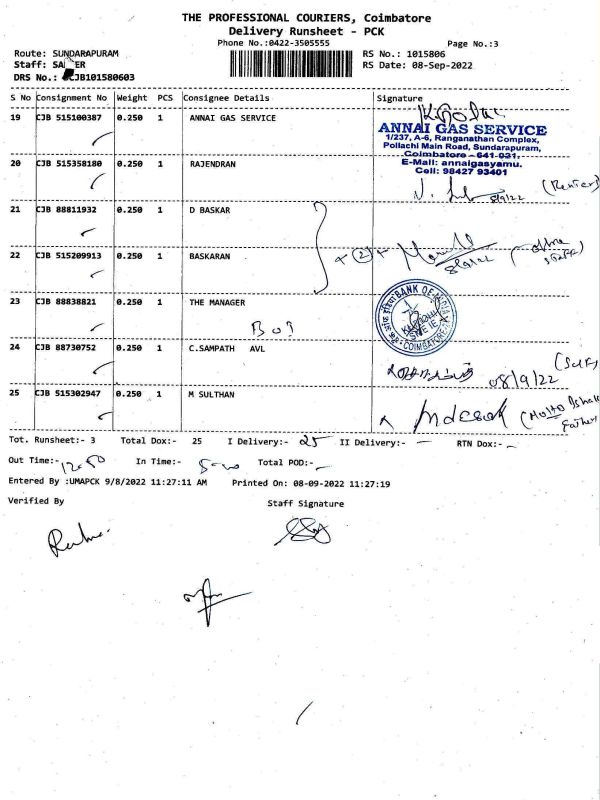 THE PROFESSIONAL COURIERS, Coimbatore
Delivery Runsheet - PCK
Phone No.:0422-3505555 Page No.:3
Route: SUNDARAPURAM RS No.: 1015806
Staff: RS Date: 08-Sep-2022
DRS No.: CJB101580603
S No Consignment No Weight PCS Consignee Details Signature
19 CJB 515100387 0.250 1 ANNAI GAS SERVICE
ANNAI GAS SERVICE
1/237, A-6, Ranganathan Complex,
Pollachi Main Road, Sundarapuram,
Coimbatore - 641 021.
E-Mail: annaigasyamu.
Cell: 98427 93401
20 CJB 515358180 0.250 1 RAJENDRAN
8/9/22 (Renter)
21 CJB 88811932 0.250 1 D BASKAR
+ (2) +
8/9/22
22 CJB 515209913 0.250 1 BASKARAN
23 CJB 88838821 0.250 1 THE MANAGER
BANK OF INDIA
COIMBATORE
BOI
24 CJB 88730752 0.250 1 C.SAMPATH AVL
08/9/22 (Self)
25 CJB 515302947 0.250 1 M SULTHAN
Father)
Tot. Runsheet:- 3 Total Dox:- 25 I Delivery:- 25 II Delivery:- — RTN Dox:- —
Out Time:- 12-50 In Time:- 5-00 Total POD:- —
Entered By :UMAPCK 9/8/2022 11:27:11 AM Printed On: 08-09-2022 11:27:19
Verified By Staff Signature